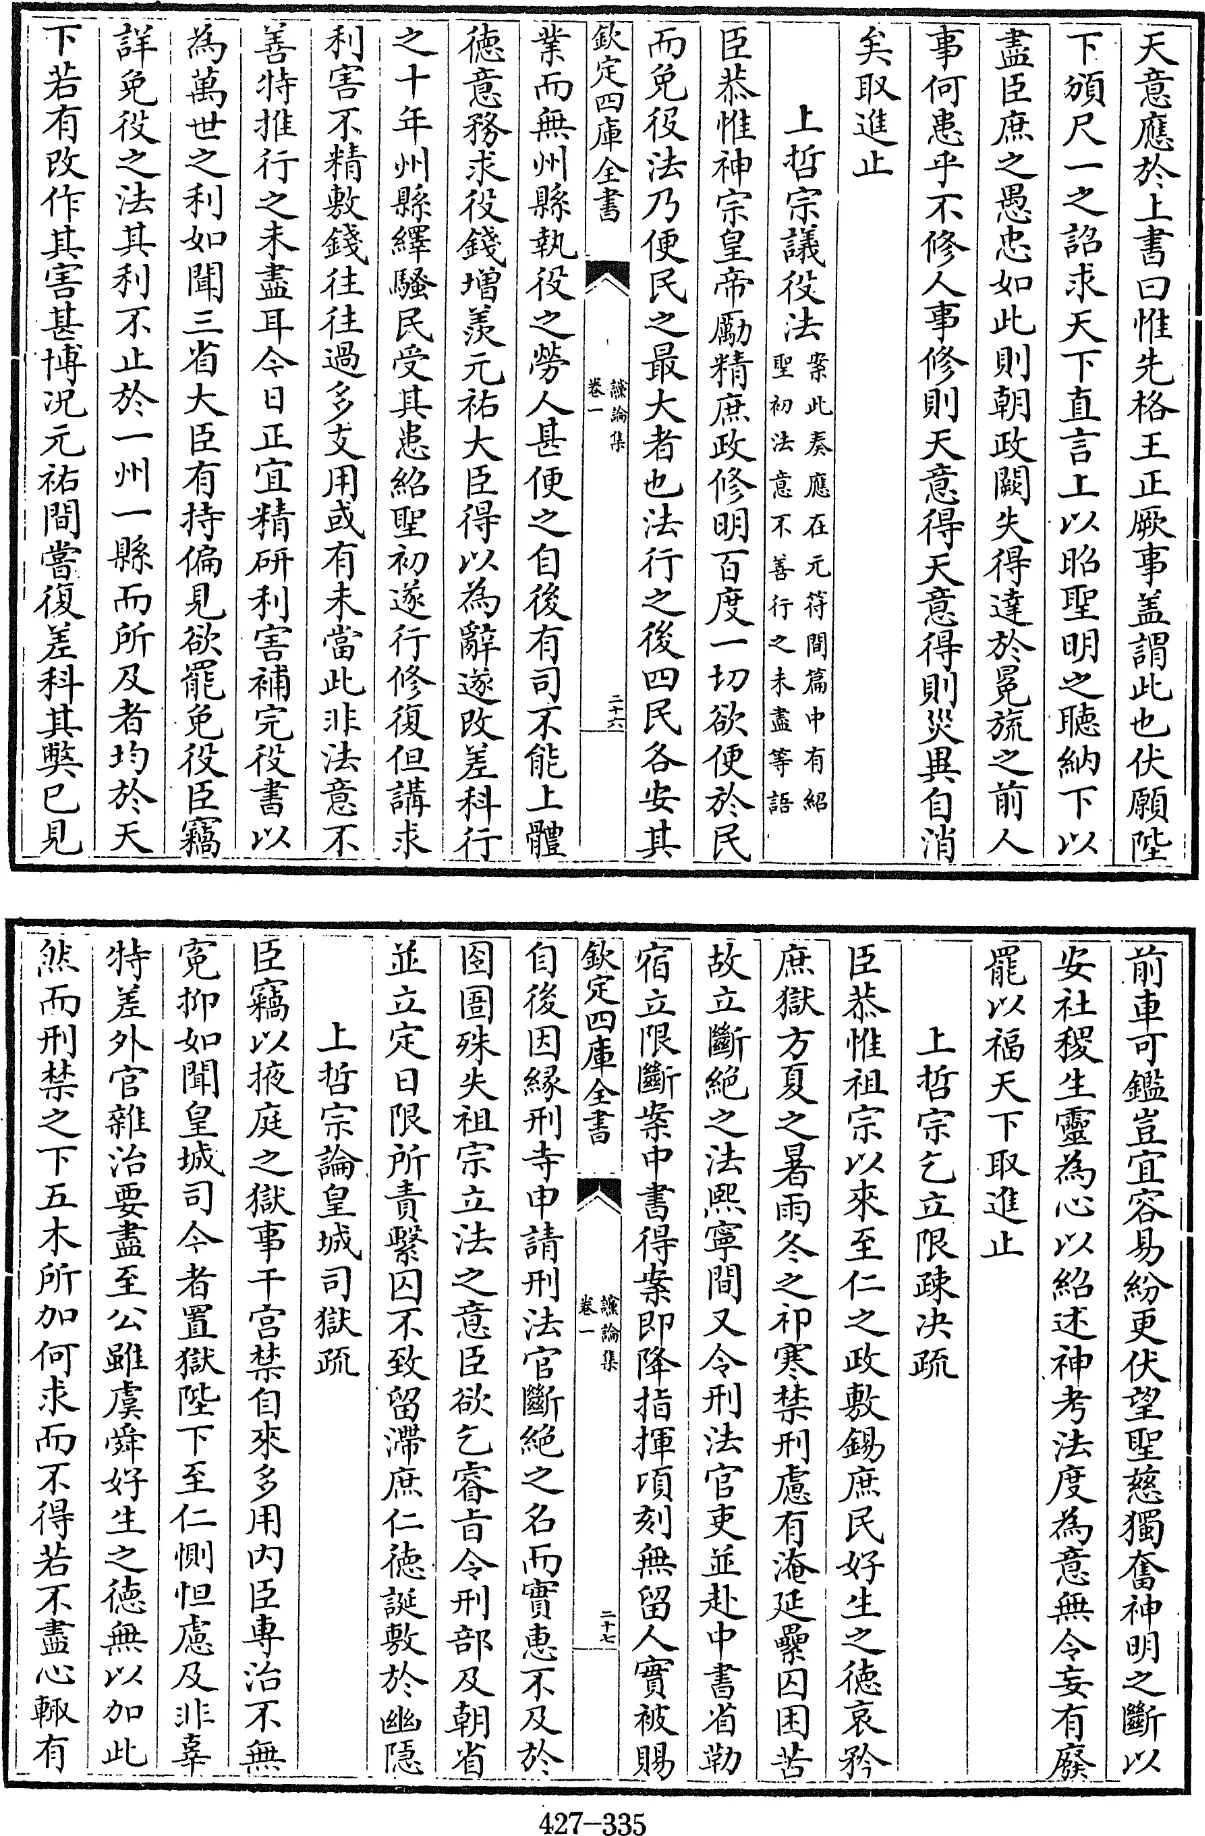 天意應於上書曰惟先格王正厥事盖謂此也伏願陛
下頒尺一之詔求天下直言上以昭聖明之聽納下以
盡臣庶之愚忠如此則朝政闕失得達於冕旒之前人
事何患乎不修人事修則天意得天意得則災異自消
矣取進止
上哲宗議役法案此奏應在元符間篇中有紹
聖初法意不善行之未盡等語
臣恭惟神宗皇帝勵精庶政修明百度一切欲便於民
而免役法乃便民之最大者也法行之後四民各安其
欽定四庫全書
讜論集
卷一
二十六
業而無州縣執役之勞人甚便之自後有司不能上體
徳意務求役錢增羨元祐大臣得以為辭遂改差科行
之十年州縣繹騷民受其患紹聖初遂行修復但講求
利害不精敷錢往往過多支用或有未當此非法意不
善特推行之未盡耳今日正宜精研利害補完役書以
為萬世之利如聞三省大臣有持偏見欲罷免役臣竊
詳免役之法其利不止於一州一縣而所及者均於天
下若有改作其害甚博况元祐間嘗復差科其獘已見
前車可鑑豈宜容易紛更伏望聖慈獨奮神明之斷以
安社稷生靈為心以紹述神考法度為意無令妄有廢
罷以福天下取進止
上哲宗乞立限疎决疏
臣恭惟祖宗以來至仁之政敷錫庶民好生之徳哀矜
庶獄方夏之暑雨冬之祁寒禁刑慮有淹延纍囚困苦
故立斷絶之法熙寧間又令刑法官吏並赴中書省勒
宿立限斷案中書得案即降指揮頃刻無留人實被賜
欽定四庫全書
讜論集
卷一
二十七
自後因縁刑寺申請刑法官斷絶之名而實惠不及於
囹圄殊失祖宗立法之意臣欲乞睿旨令刑部及朝省
並立定日限所責繫囚不致留滯庶仁徳誕敷於幽隱
上哲宗論皇城司獄疏
臣竊以掖庭之獄事干宫禁自來多用内臣専治不無
寃抑如聞皇城司今者置獄陛下至仁惻怛慮及非辜
特差外官雜治要盡至公雖虞舜好生之徳無以加此
然而刑禁之下五木所加何求而不得若不盡心輙有
427-335